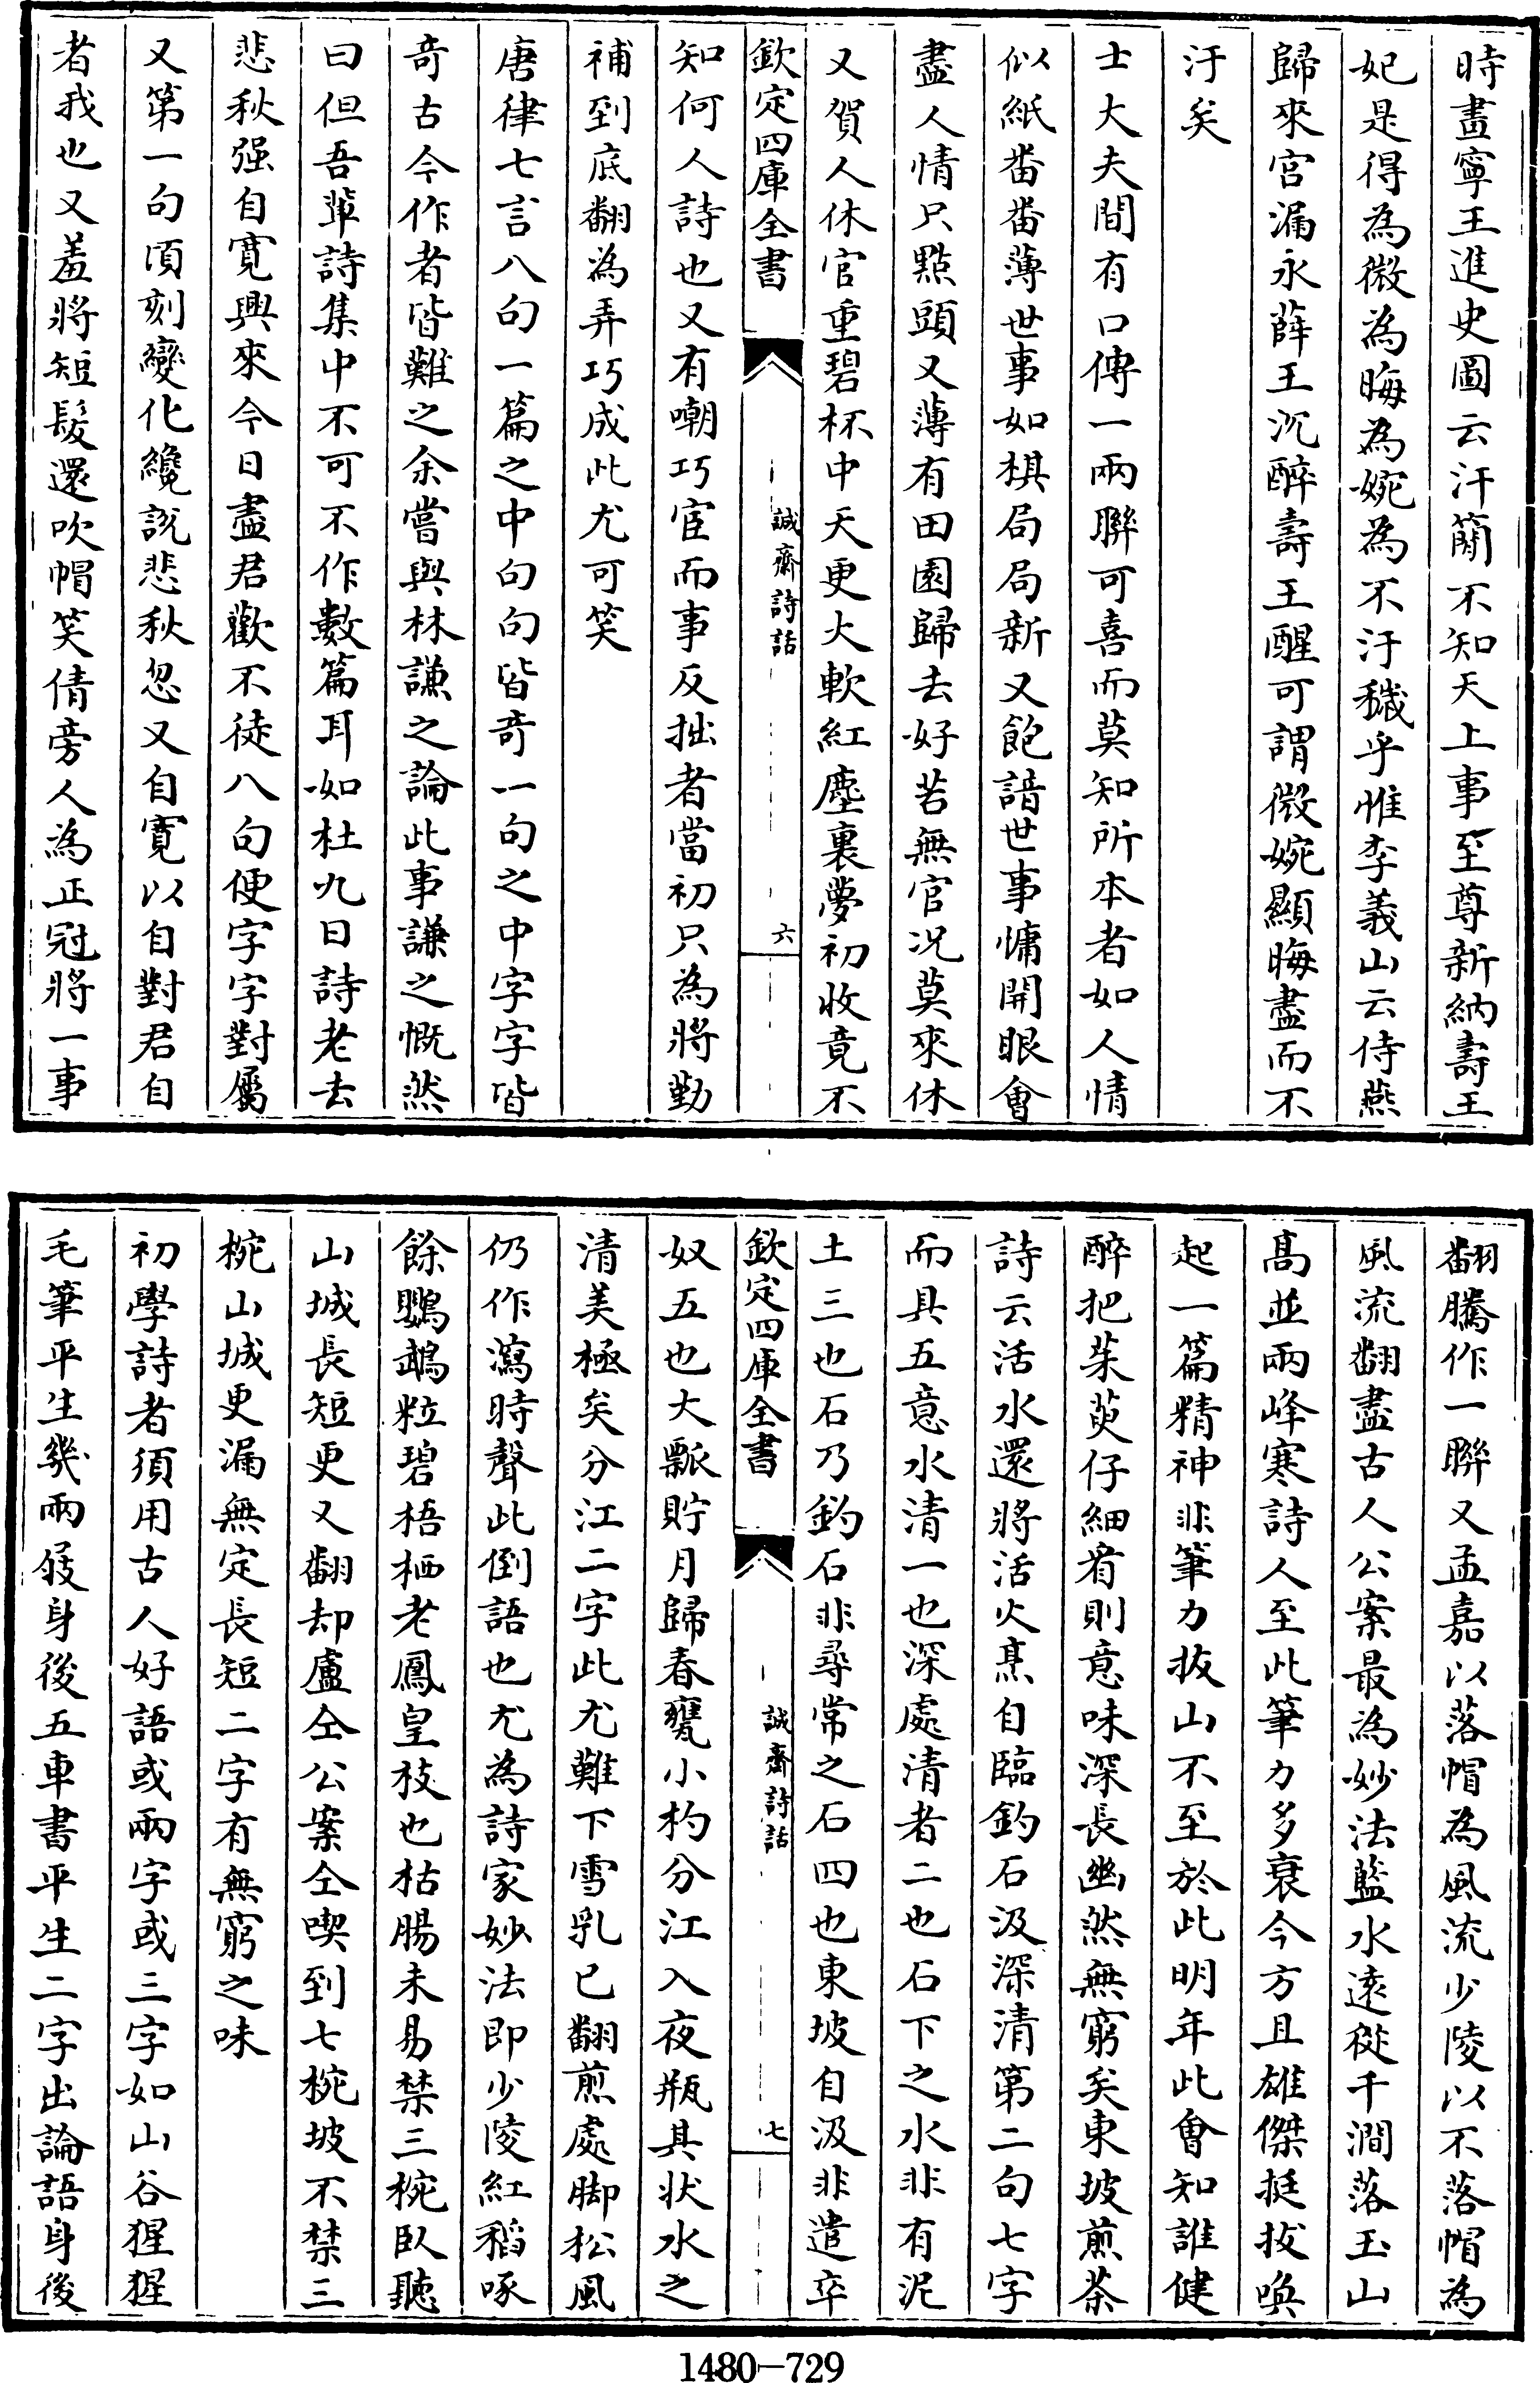 時畫寧王進史圖云汗簡不知天上事至尊新納壽王
妃是得為微為晦為婉為不汙穢乎惟李義山云侍燕
歸來宮漏永薛王沉醉壽王醒可謂微婉顯晦盡而不
汙矣
士大夫間有口傳一兩聯可喜而莫知所本者如人情
似紙番番薄世事如棋局局新又飽諳世事慵開眼會
盡人情只點頭又薄有田園歸去好若無官况莫來休
又賀人休官重碧杯中天更大軟紅塵裏夢初收竟不
欽定四庫全書
誠齋詩話
六
知何人詩也又有嘲巧宦而事反拙者當初只為將勤
補到底翻為弄巧成此尤可笑
唐律七言八句一篇之中句句皆竒一句之中字字皆
竒古今作者皆難之余嘗與林謙之論此事謙之慨然
曰但吾軰詩集中不可不作數篇耳如杜九日詩老去
悲秋强自寛興來今日盡君歡不徒八句便字字對屬
又第一句頃刻變化纔説悲秋忽又自寛以自對君自
者我也又羞將短髮還吹帽笑倩旁人為正冠將一事
翻騰作一聯又孟嘉以落帽為風流少陵以不落帽為
風流翻盡古人公案最為妙法藍水遠從千澗落玉山
髙並兩峰寒詩人至此筆力多衰今方且雄傑挺拔喚
起一篇精神非筆力拔山不至於此明年此會知誰健
醉把茱萸仔細看則意味深長幽然無窮矣東坡煎茶
詩云活水還將活火烹自臨釣石汲深清第二句七字
而具五意水清一也深處清者二也石下之水非有泥
土三也石乃釣石非尋常之石四也東坡自汲非遣卒
欽定四庫全書
誠齋詩話
七
奴五也大瓢貯月歸春甕小杓分江入夜瓶其狀水之
清美極矣分江二字此尤難下雪乳已翻煎處脚松風
仍作瀉時聲此倒語也尤為詩家妙法即少陵紅稻啄
餘鸚鵡粒碧梧栖老鳳皇枝也枯腸未易禁三椀臥聽
山城長短更又翻却盧仝公案仝喫到七椀坡不禁三
椀山城更漏無定長短二字有無窮之味
初學詩者須用古人好語或兩字或三字如山谷猩猩
毛筆平生幾兩屐身後五車書平生二字出論語身後
1480-729